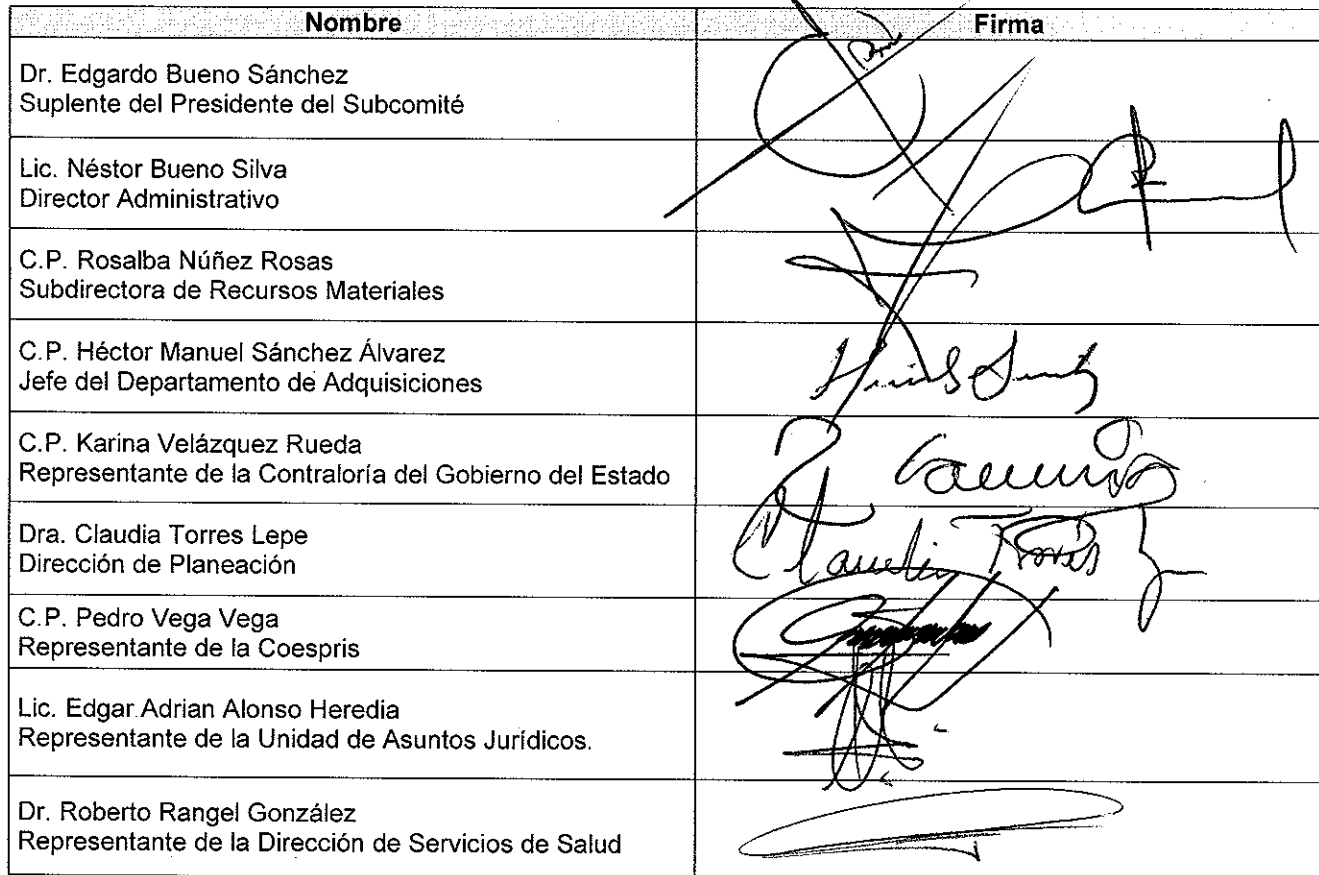 Nombre Firma
Dr. Edgardo Bueno Sánchez
Suplente del Presidente del Subcomité
Lic. Néstor Bueno Silva
Director Administrativo
C.P. Rosalba Núñez Rosas
Subdirectora de Recursos Materiales
C.P. Héctor Manuel Sánchez Álvarez
Jefe del Departamento de Adquisiciones
C.P. Karina Velázquez Rueda
Representante de la Contraloría del Gobierno del Estado
Dra. Claudia Torres Lepe
Dirección de Planeación
Claudia Torres
C.P. Pedro Vega Vega
Representante de la Coespris
Lic. Edgar Adrian Alonso Heredia
Representante de la Unidad de Asuntos Jurídicos.
Dr. Roberto Rangel González
Representante de la Dirección de Servicios de Salud